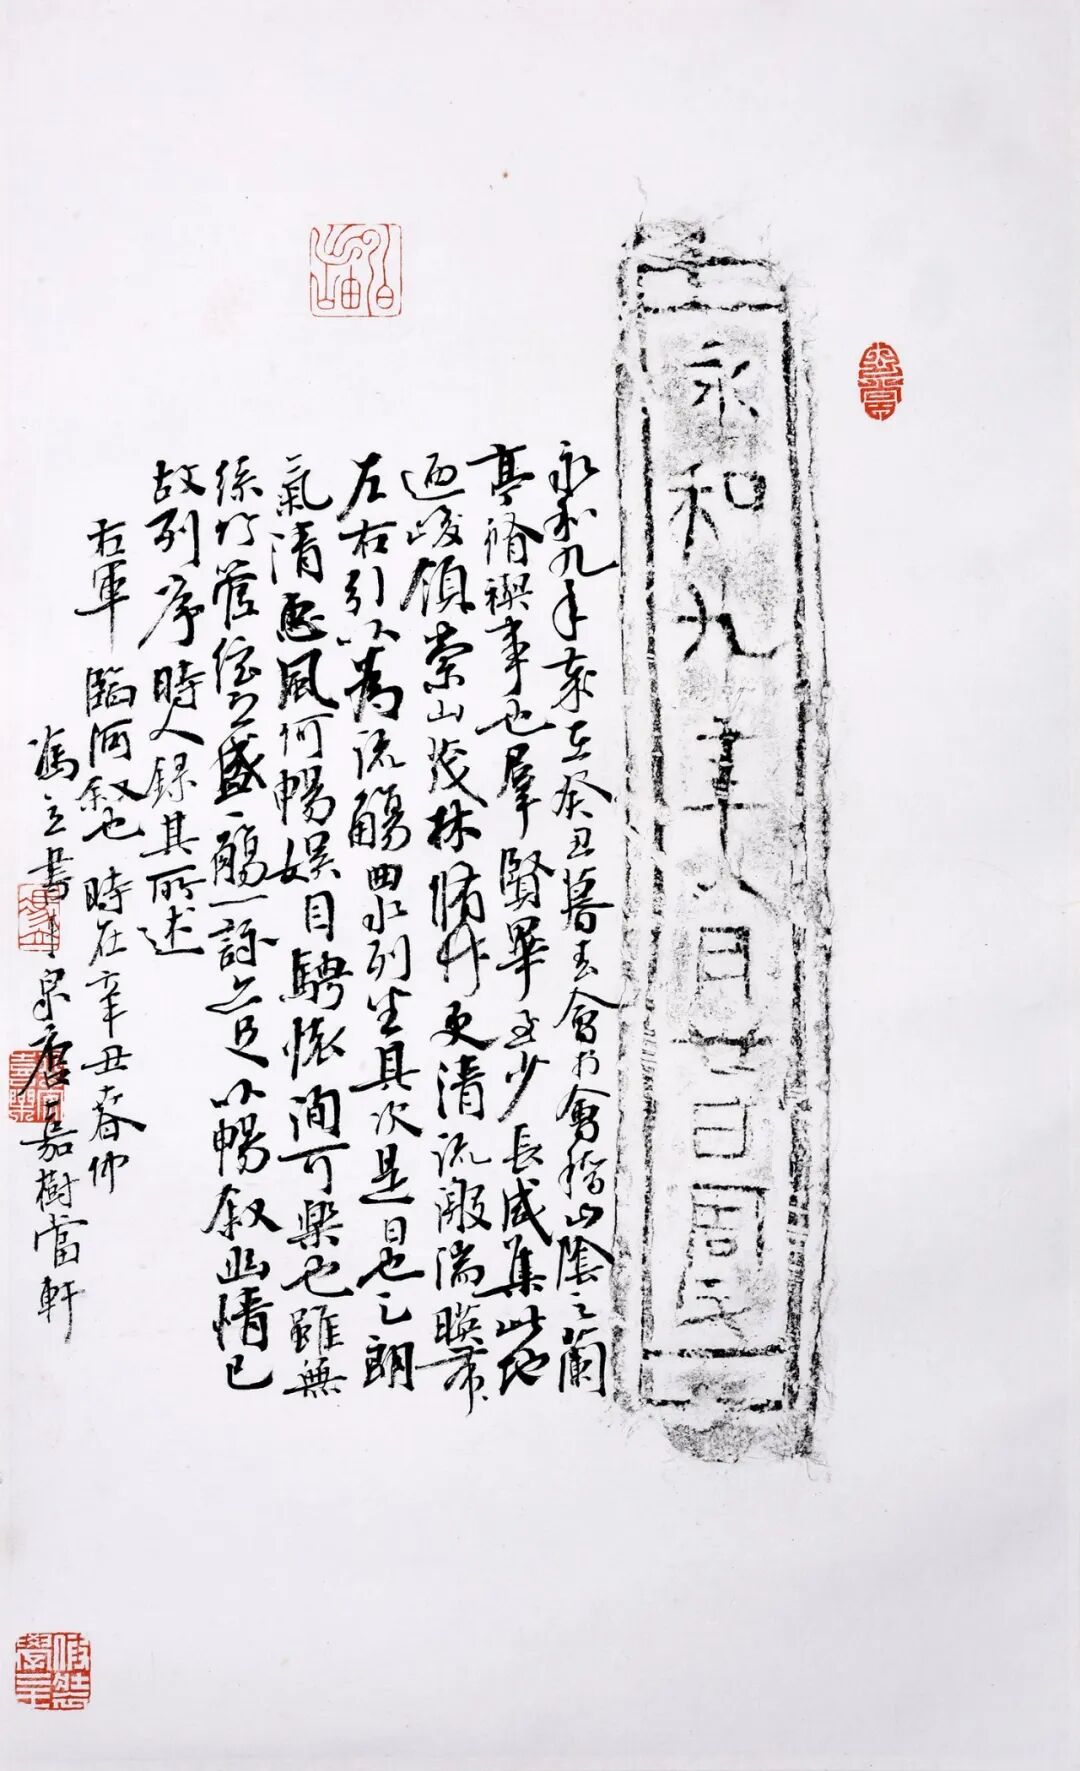 永和九年八月廿日周氏
永和九年歲在癸丑暮春會於會稽山陰之蘭
亭脩禊事也羣賢畢至少長咸集此地
迺峻領崇山茂林脩竹更清流激湍暎帶
左右引以為流觴曲水列坐其次是日也天朗
氣清惠風何暢娛目騁懷洵可樂也雖無
絲竹管弦之盛一觴一詠亦足以暢叙幽情已
故列序時人錄其所述
右軍臨河叙也時在辛丑春仲
馮立書于泉唐嘉樹當軒